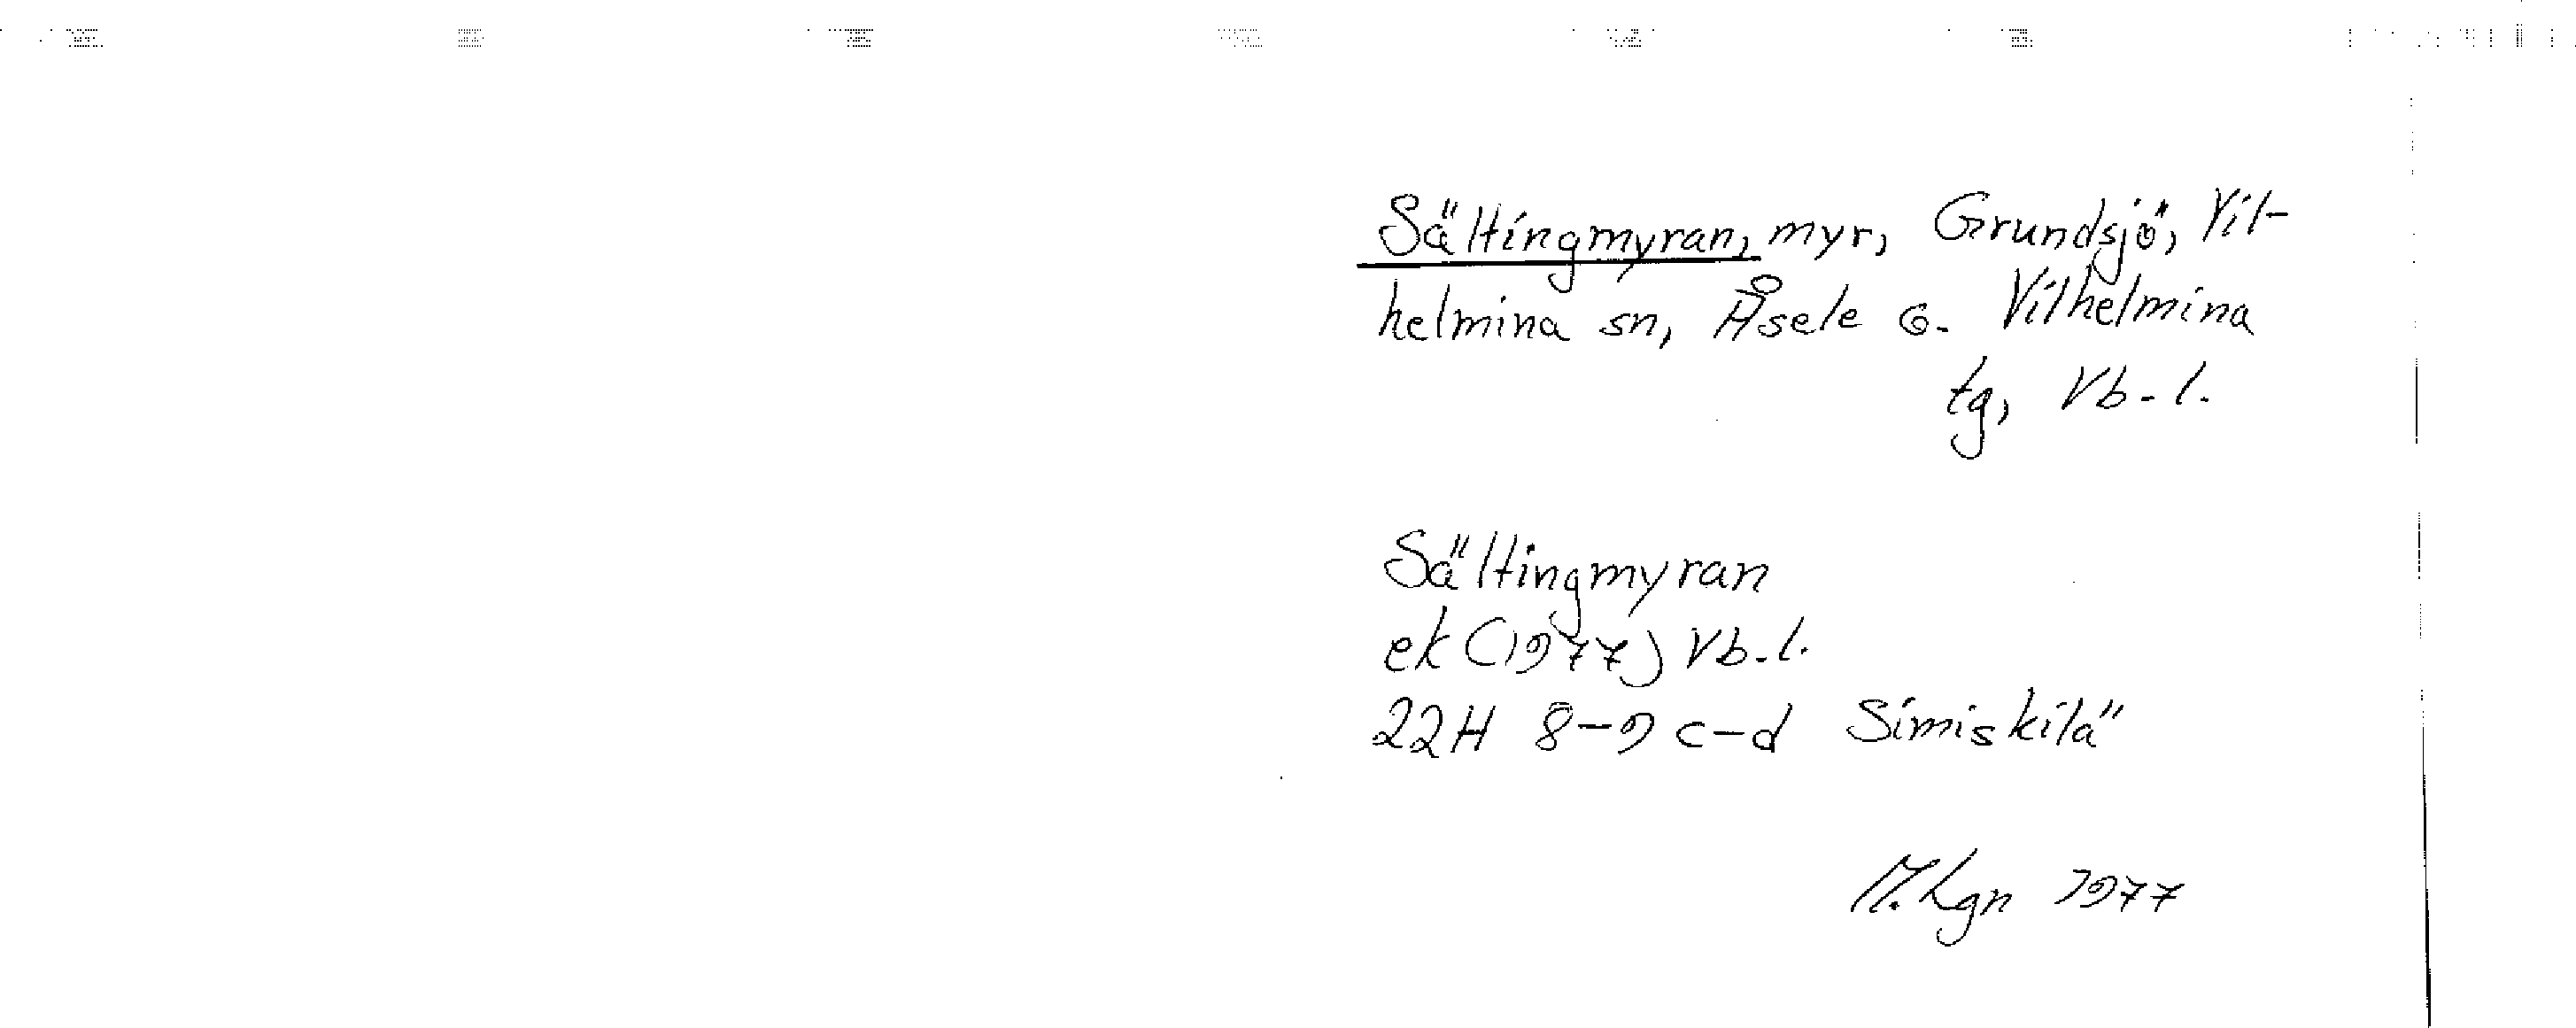 Sältingmyran, myr, Grundsjö, Vil-
helmina sn, Åsele G. Vilhelmina
tg, Vb. l.
Sältingmyran
ek (1977) Vb. l.
22H 8-9 c-d Simiskilä
M. Lgn 1977